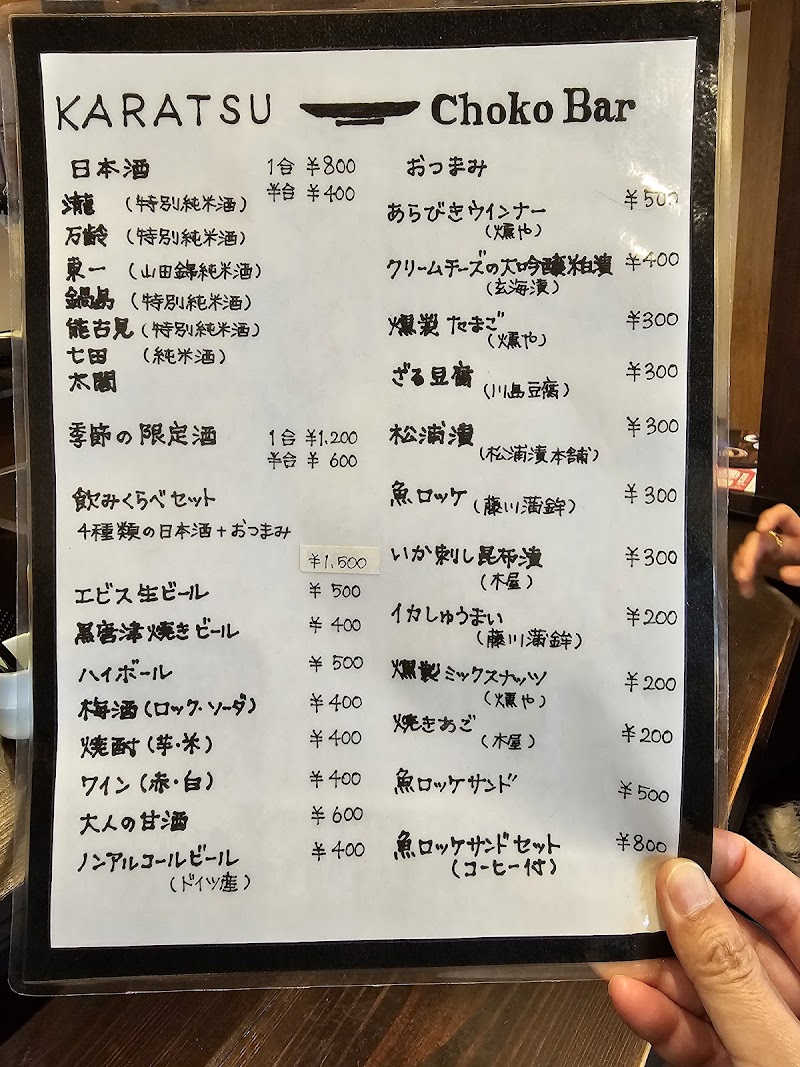 KARATSU Choko Bar
日本酒 1合 ¥800
半合 ¥400
瀧 (特別純米酒)
万齢 (特別純米酒)
東一 (山田錦純米酒)
鍋島 (特別純米酒)
能古見 (特別純米酒)
七田 (純米酒)
太閤
季節の限定酒 1合 ¥1,200
半合 ¥600
飲みくらべセット
4種類の日本酒+おつまみ
¥1,500
エビス生ビール ¥500
黒唐津焼きビール ¥400
ハイボール ¥500
梅酒(ロック・ソーダ) ¥400
焼酎(芋・米) ¥400
ワイン(赤・白) ¥400
大人の甘酒 ¥600
ノンアルコールビール ¥400
(ドイツ産)
おつまみ
あらびきウインナー ¥500
(燻や)
クリームチーズの大吟醸粕漬 ¥400
(玄海漬)
燻製たまご ¥300
(燻や)
ざる豆腐 ¥300
(川島豆腐)
松浦漬 ¥300
(松浦漬本舗)
魚ロッケ (藤川蒲鉾) ¥300
いか刺し昆布漬 ¥300
(木屋)
イカしゅうまい ¥200
(藤川蒲鉾)
燻製ミックスナッツ ¥200
(燻や)
焼きあご ¥200
(木屋)
魚ロッケサンド ¥500
魚ロッケサンドセット ¥800
(コーヒー付)